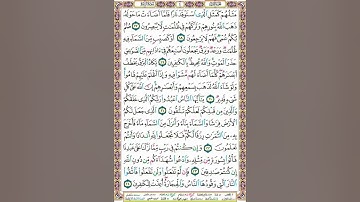 مَثَلُهُمْ كَمَثَلِ الَّذِي اسْتَوْقَدَ نَارًا فَلَمَّا أَضَاءَتْ مَا حَوْلَهُ
ذَهَبَ اللَّهُ بِنُورِهِمْ وَتَرَكَهُمْ فِي ظُلُمَٰتٍ لَا يُبْصِرُونَ صُمٌّ
بُكْمٌ عُمْيٌ فَهُمْ لَا يَرْجِعُونَ أَوْ كَصَيِّبٍ مِنَ السَّمَاءِ فِيهِ
ظُلُمَٰتٌ وَرَعْدٌ وَبَرْقٌ يَجْعَلُونَ أَصَٰبِعَهُمْ فِي ءَاذَانِهِمْ مِنَ الصَّوَٰعِقِ
حَذَرَ الْمَوْتِ وَاللَّهُ مُحِيطٌ بِالْكَٰفِرِينَ يَكَادُ الْبَرْقُ يَخْطَفُ
أَبْصَٰرَهُمْ كُلَّمَا أَضَاءَ لَهُمْ مَشَوْا فِيهِ وَإِذَا أَظْلَمَ عَلَيْهِمْ قَامُوا
وَلَوْ شَاءَ اللَّهُ لَذَهَبَ بِسَمْعِهِمْ وَأَبْصَٰرِهِمْ إِنَّ اللَّهَ عَلَىٰ كُلِّ
شَيْءٍ قَدِيرٌ يَٰأَيُّهَا النَّاسُ اعْبُدُوا رَبَّكُمُ الَّذِي خَلَقَكُمْ
وَالَّذِينَ مِنْ قَبْلِكُمْ لَعَلَّكُمْ تَتَّقُونَ الَّذِي جَعَلَ لَكُمُ
الْأَرْضَ فِرَٰشًا وَالسَّمَاءَ بِنَاءً وَأَنْزَلَ مِنَ السَّمَاءِ مَاءً فَأَخْرَجَ
بِهِ مِنَ الثَّمَرَٰتِ رِزْقًا لَكُمْ فَلَا تَجْعَلُوا لِلَّهِ أَنْدَادًا وَأَنْتُمْ
تَعْلَمُونَ وَإِنْ كُنْتُمْ فِي رَيْبٍ مِمَّا نَزَّلْنَا عَلَىٰ عَبْدِنَا
فَأْتُوا بِسُورَةٍ مِنْ مِثْلِهِ وَادْعُوا شُهَدَاءَكُمْ مِنْ دُونِ اللَّهِ
إِنْ كُنْتُمْ صَٰدِقِينَ فَإِنْ لَمْ تَفْعَلُوا وَلَنْ تَفْعَلُوا فَاتَّقُوا
النَّارَ الَّتِي وَقُودُهَا النَّاسُ وَالْحِجَارَةُ أُعِدَّتْ لِلْكَٰفِرِينَ